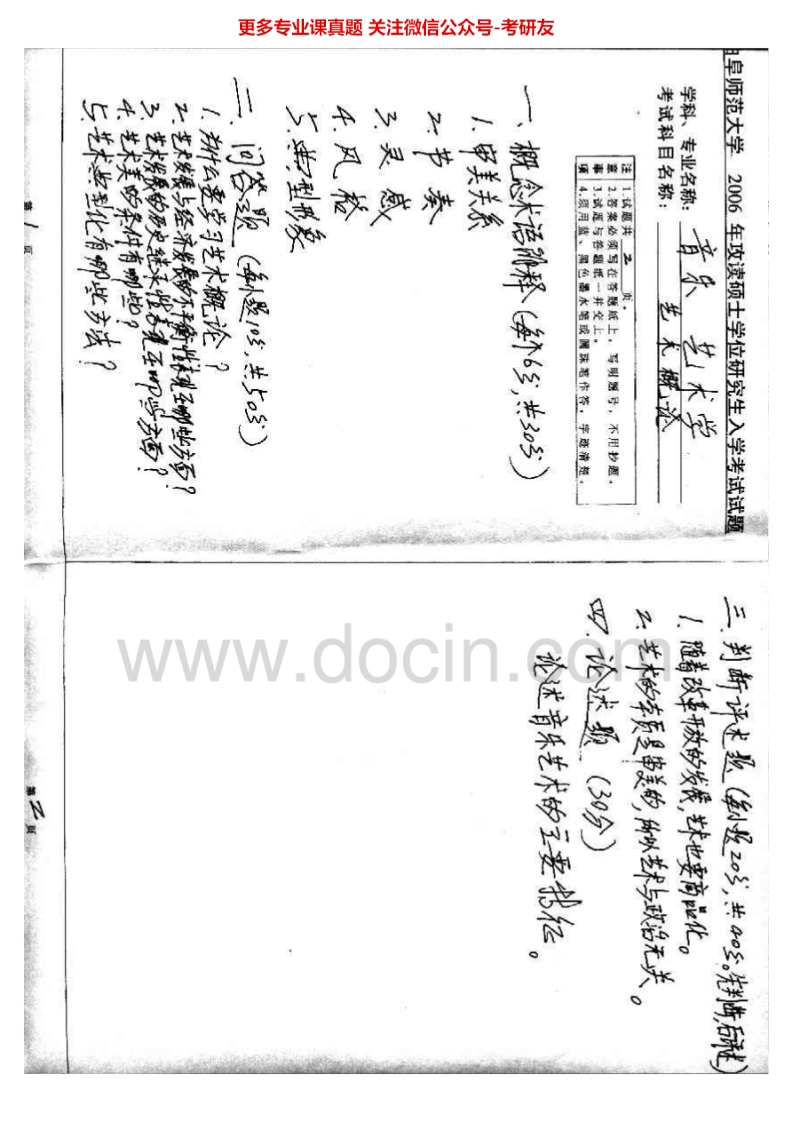 更多专业课真题 关注微信公众号-考研友
阜师范大学 2006 年攻读硕士学位研究生入学考试试题
学科、专业名称: 音乐 艺术学
考试科目名称: 艺术概论
注意事项
1.试题共 2 页。
2.答案必须写在答题纸上，写明题号，不用抄题。
3.试题与答题纸一并交上。
4.须用蓝、黑色墨水笔或圆珠笔作答，字迹清楚。
一、概念术语解释(每个6分,共30分)
1. 审美关系
2. 节奏
3. 灵感
4. 风格
5. 典型形象
二、问答题(每小题10分,共50分)
1. 为什么要学习艺术概论?
2. 艺术发展与经济发展的不平衡性表现在哪些方面?
3. 艺术发展的历史继承性表现在哪些方面?
4. 艺术美的条件有哪些?
5. 艺术典型化有哪些方法?
第 1 页
三.判断评述题(每小题20分,共40分。先判断,后评述)
1. 随着改革开放的发展,艺术也要商品化。
2. 艺术的本质是审美的,所以艺术与政治无关。
四.论述题(30分)
论述音乐艺术的主要特征。
第 2 页
www.docin.com